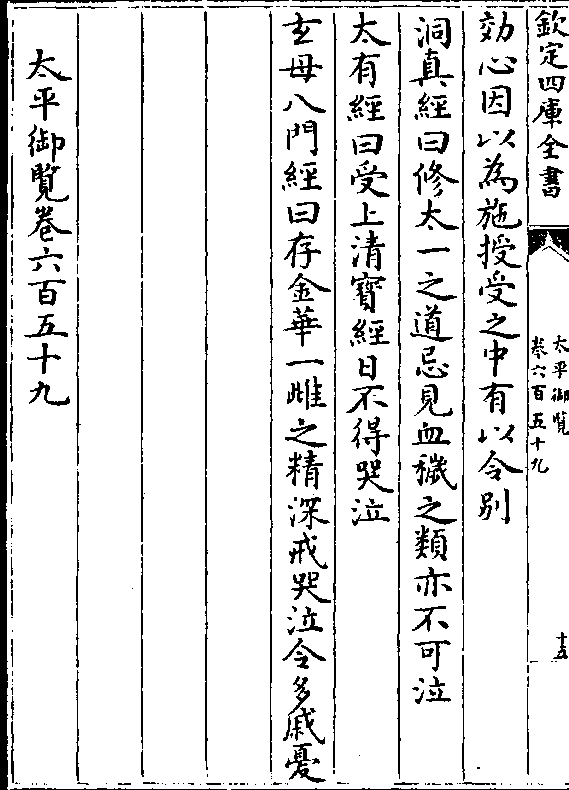 欽定四庫全書
太平御覧
卷六百五十九
十五
効心因以為施授受之中有以令别
洞真經曰修太一之道忌見血穢之類亦不可泣
太有經曰受上清寳經日不得哭泣
玄母八門經曰存金華一雌之精深戒哭泣令多戚憂
太平御覧卷六百五十九